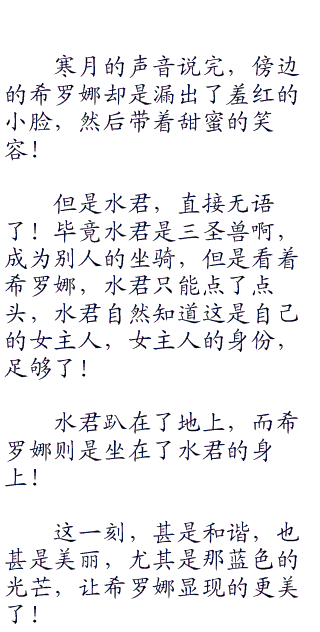 寒月的声音说完，傍边
的希罗娜却是漏出了羞红的
小脸，然后带着甜蜜的笑
容！
但是水君，直接无语
了！毕竟水君是三圣兽啊，
成为别人的坐骑，但是看着
希罗娜，水君只能点了点
头，水君自然知道这是自己
的女主人，女主人的身份，
足够了！
水君趴在了地上，而希
罗娜则是坐在了水君的身
上！
这一刻，甚是和谐，也
甚是美丽，尤其是那蓝色的
光芒，让希罗娜显现的更美
了！